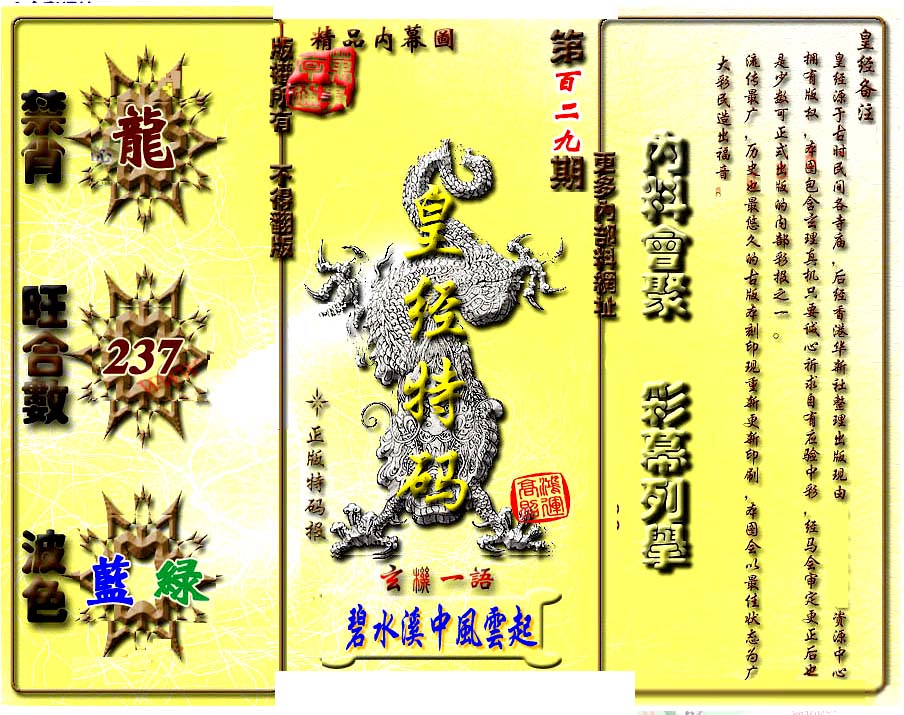 皇经备注
皇经源于古时民间各寺庙，后经香港华新社整理出版现由 资源中心
拥有版权，本图包含玄理真机只要诚心祈求自有应验中彩，经马会审定更正后也
是少数可正式出版的内部彩报之一。
流传最广，历史也最悠久的古版本刻印现重新更新印刷，本图会以最佳状态为广
大彩民造出福音
内料會聚 彩幕列舉
更多內部料網址
精品内幕圖
第百二九期
皇经特码
正版特码报
鴻運高照
玄機一語
碧水溪中風雲起
版權所有 不得翻版
禁肖
龍
旺合數
237
波色
藍 綠